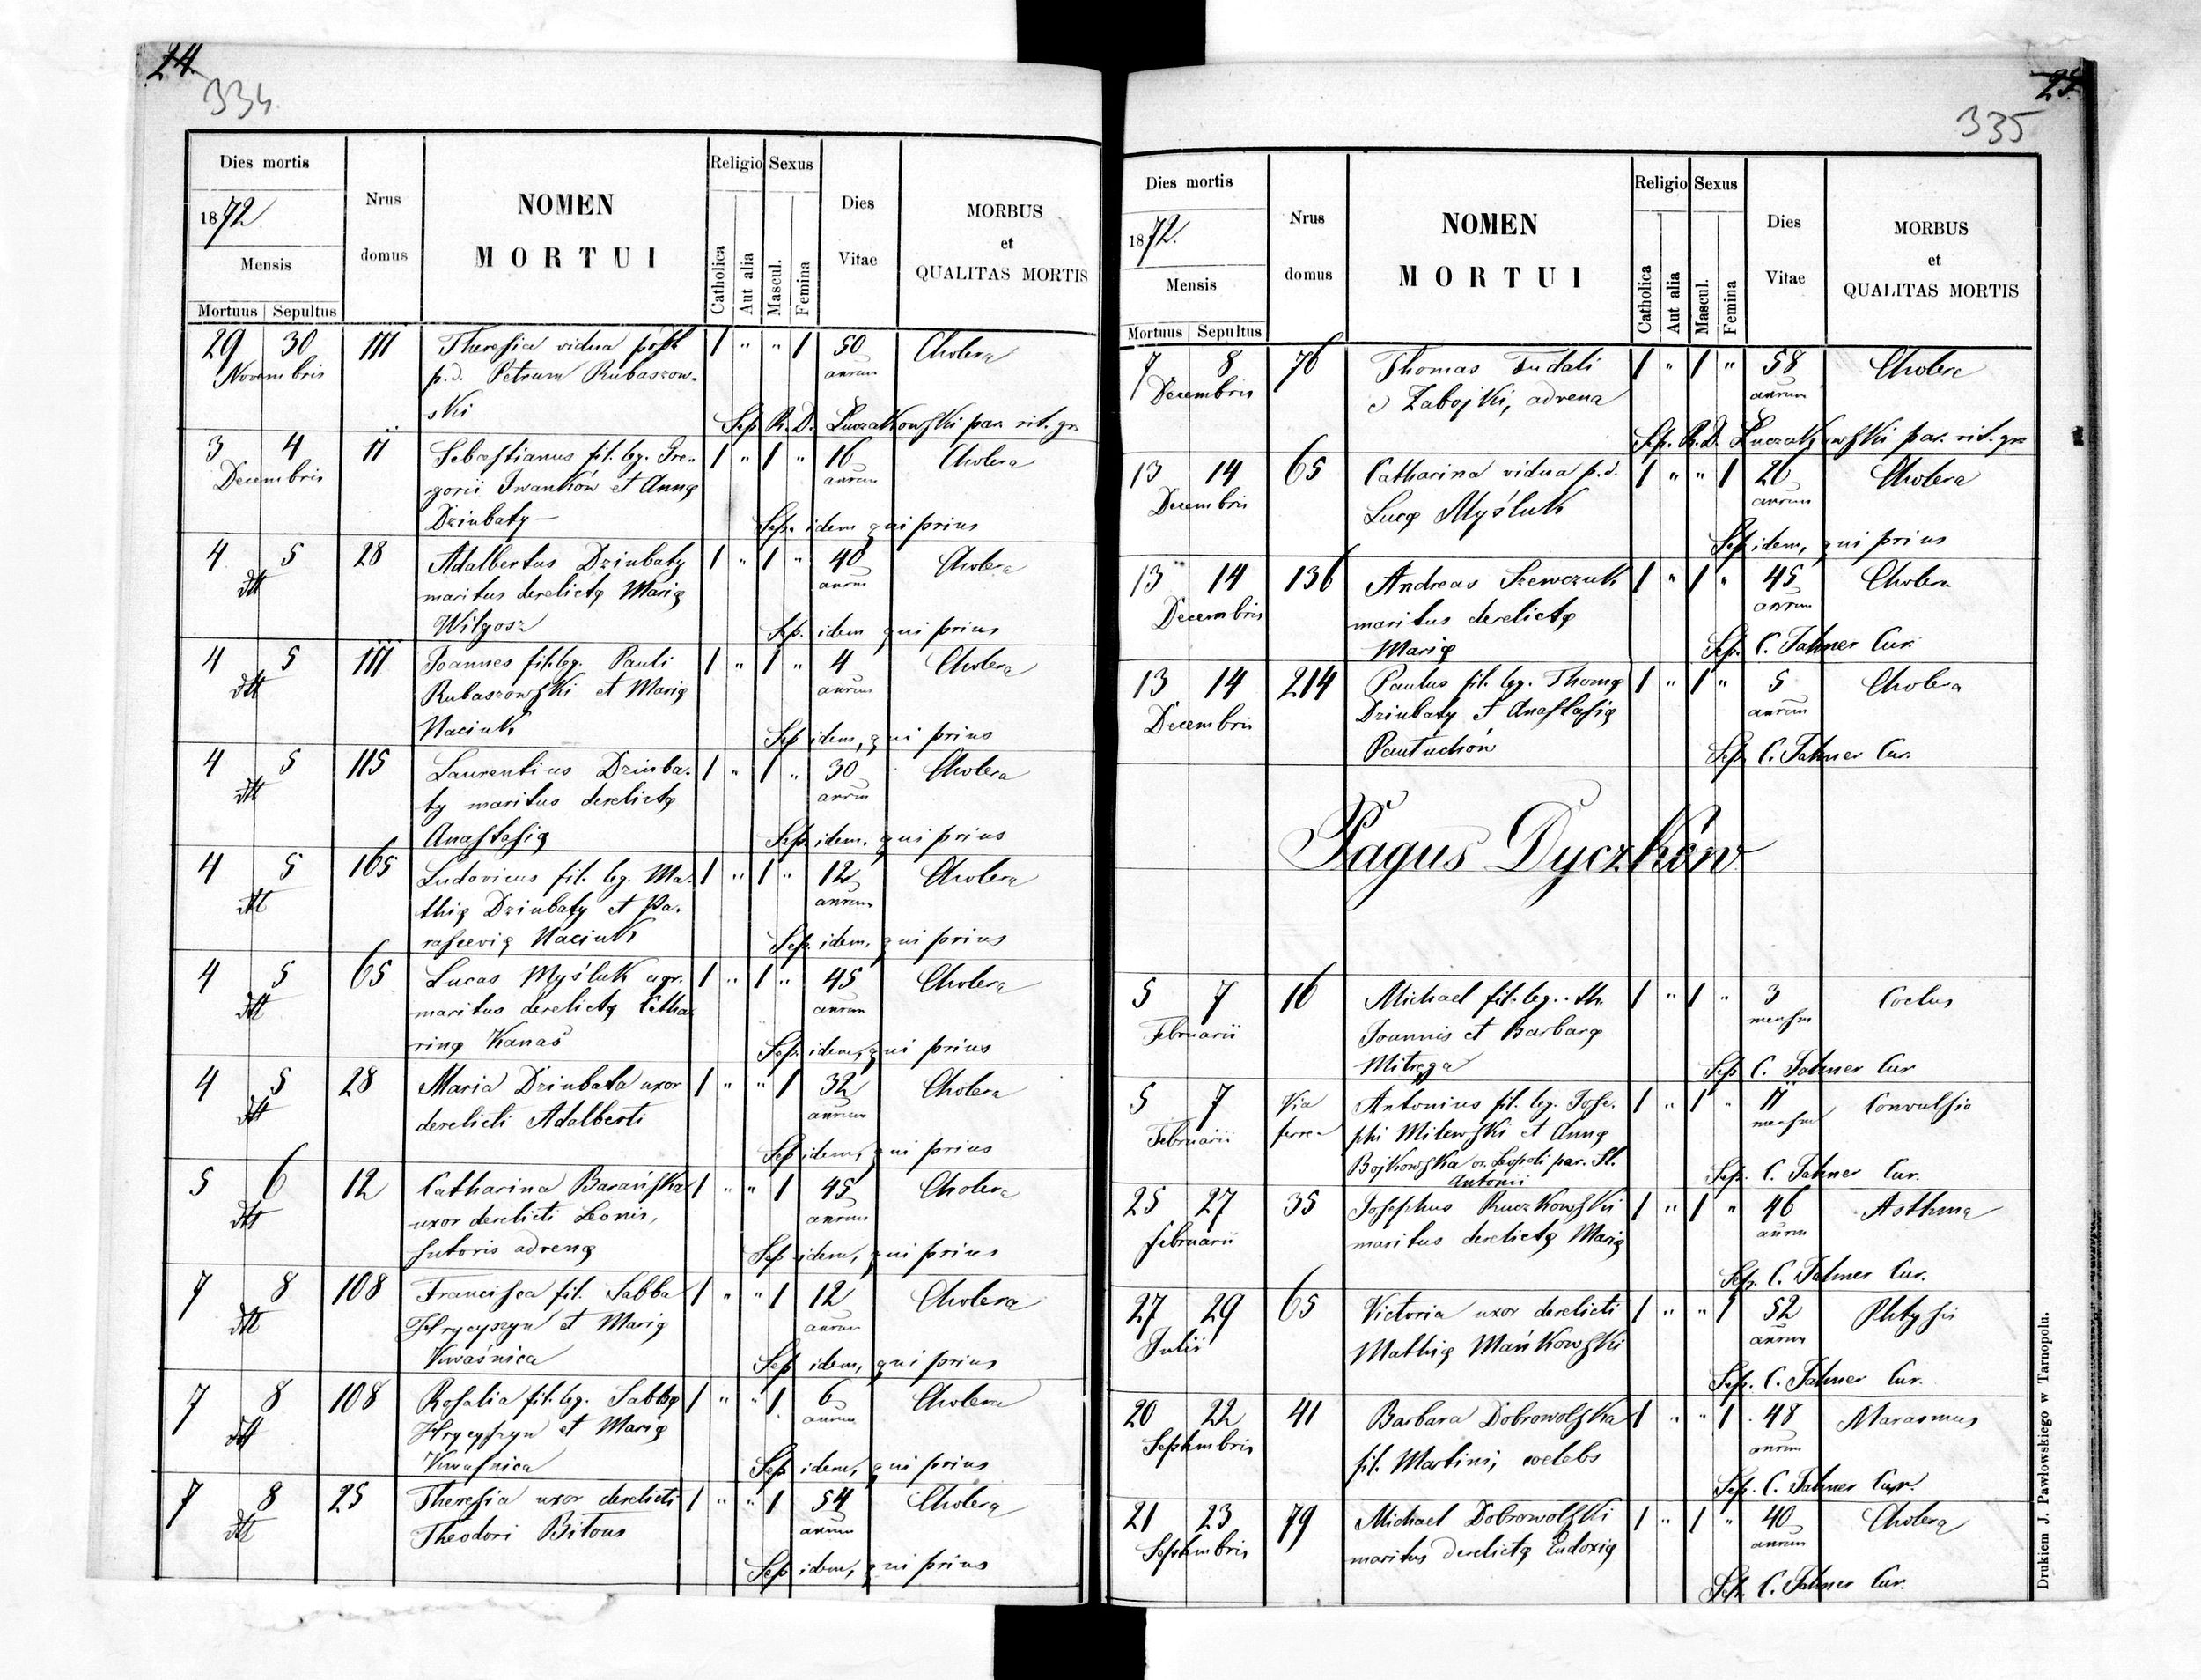 24.
334
Dies mortis
1872.
Mensis
Mortuus Sepultus
Nrus
domus
NOMEN
MORTUI
Religio Sexus
Catholica
Aut alia
Mascul.
Femina
Dies
Vitae
MORBUS
et
QUALITAS MORTIS
29 30 111 Theresia vidua post 1 " " 1 50 Cholera
Novembris p.d. Petrum Rubaszow- annrum
ski Sep. R. D. Łuczakowski par. rit. gr.
3 4 11 Sebastianus fil. leg. Gre- 1 " 1 " 16 Cholera
Decembris gorii Iwanków et Annę annrum
Dziubaty — Sep. idem qui prius
4 5 28 Adalbertus Dziubaty 1 " 1 " 40 Cholera
dtt maritus derelictę Marię annrum
Wilgosz Sep. idem qui prius
4 5 111 Joannes fil. leg. Pauli 1 " 1 " 4 Cholera
dtt Rubaszowski et Marię annrum
Naciuk Sep. idem, qui prius
4 5 115 Laurentius Dziuba- 1 " 1 " 30 Cholera
dtt ty maritus derelictę annrum
Anastasię Sep. idem, qui prius
4 5 165 Ludovicus fil. leg. Ma- 1 " 1 " 12 Cholera
dtt thię Dziubaty et Pa- annrum
rascevię Naciuk Sep. idem, qui prius
4 5 65 Lucas Myśluk agr. 1 " 1 " 45 Cholera
dtt maritus derelictę Catha annrum
rinę Kanas Sep. idem, qui prius
4 5 28 Maria Dziubata uxor 1 " " 1 32 Cholera
dtt derelicti Adalberti annrum
Sep. idem, qui prius
5 6 12 Catharina Barańska 1 " " 1 45 Cholera
dtt uxor derelicti Leonis, annrum
sutoris advenę Sep. idem, qui prius
7 8 108 Francisca fil. Sabba 1 " " 1 12 Cholera
dtt Hrycyszyn et Marię annrum
Kwaśnica Sep. idem, qui prius
7 8 108 Rosalia fil. leg. Sabbę 1 " " 1 6 Cholera
dtt Hrycyszyn et Marię annrum
Kwasnica Sep. idem, qui prius
7 8 25 Theresia uxor derelicti 1 " " 1 54 Cholera
dtt Theodori Bitous annrum
Sep. idem, qui prius
25.
335
Dies mortis
1872.
Mensis
Mortuus Sepultus
Nrus
domus
NOMEN
MORTUI
Religio Sexus
Catholica
Aut alia
Mascul.
Femina
Dies
Vitae
MORBUS
et
QUALITAS MORTIS
7 8 76 Thomas Fudali 1 " 1 " 58 Cholera
Decembris e Zabojki, advena annrum
Sep. R. D. Łuczakowski par. rit. gr.
13 14 65 Catharina vidua p.d. 1 " " 1 26 Cholera
Decembris Lucę Myśluk annrum
Sep. idem, qui prius
13 14 136 Andreas Szewczuk 1 " 1 " 45 Cholera
Decembris maritus derelictę annrum
Marię Sep. C. Tahner Cur.
13 14 214 Paulus fil. leg. Thomę 1 " 1 " 5 Cholera
Decembris Dziubaty et Anastasię annrum
Pantuchów Sep. C. Tahner Cur.
Pagus Dyczków
5 7 16 Michael fil. leg. th. 1 " 1 " 3 Coctus
Februarii Joannis et Barbarę mensm
Mitręga Sep. C. Tahner Cur
5 7 Via Antonius fil. leg. Jose- 1 " 1 " 11 Convulsio
Februarii ferrea phi Milewski et Annę mensm
Bojkowska or. Leopoli par. St.
Antonii Sep. C. Tahner Cur.
25 27 35 Josephus Ruczkowski 1 " 1 " 46 Asthma
februarii maritus derelictę Marię annrum
Sep. C. Tahner Cur.
27 29 65 Victoria uxor derelicti 1 " " 1 52 Phtysis
Julii Mathię Mańkowski annrum
Sep. C. Tahner Cur.
20 22 41 Barbara Dobrowolska 1 " " 1 48 Marasmus
Septembris fil. Martini, coelebs annrum
Sep. C. Tahner Cur.
21 23 79 Michael Dobrowolski 1 " 1 " 40 Cholera
Septembris maritus derelictę Eudoxię annrum
Sep. C. Tahner Cur.
Drukiem J. Pawłowskiego w Tarnopolu.